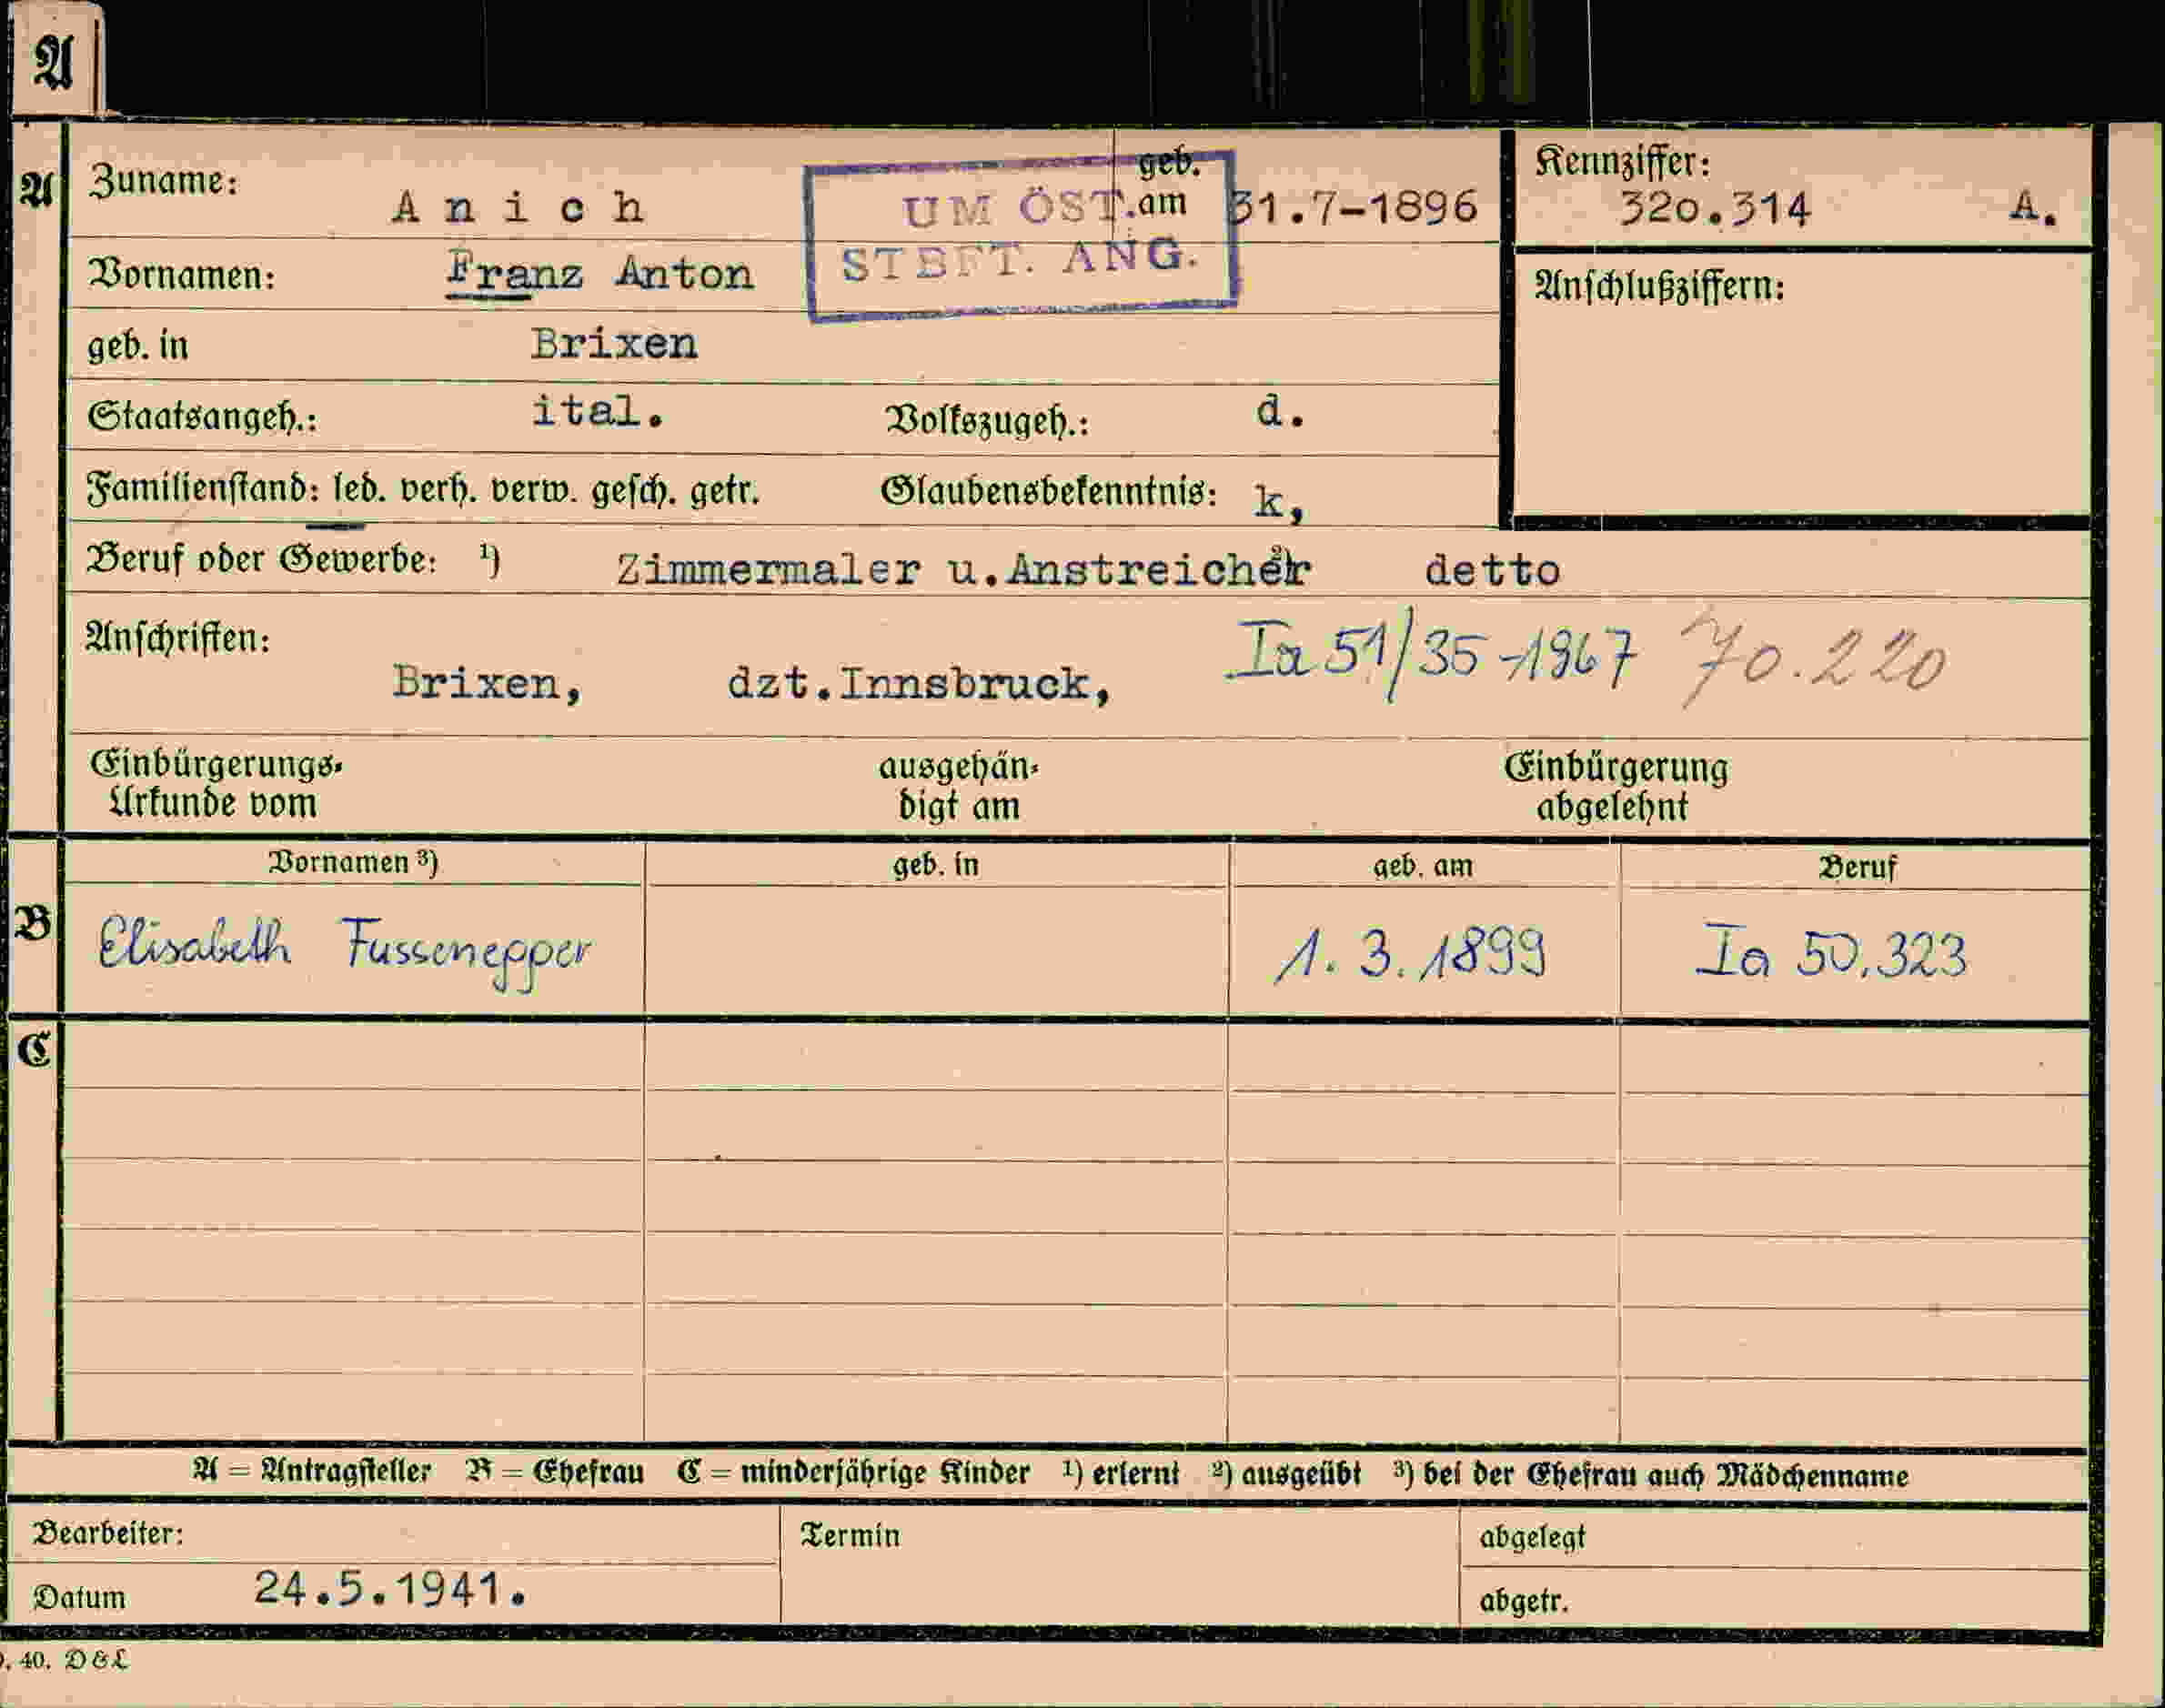 A
A
Zuname: A n i c h
geb. am 31.7-1896
UM ÖST.
STBFT. ANG.
Kennziffer:
320.314 A.
Vornamen: Franz Anton
Anschlußziffern:
geb. in Brixen
Staatsangeh.: ital. Volkszugeh.: d.
Familienstand: led. verh. verw. gesch. getr. Glaubensbekenntnis: k,
Beruf oder Gewerbe: ¹) Zimmermaler u.Anstreicher ²) detto
Anschriften: Ia 51/35-1967 70.220
Brixen, dzt.Innsbruck,
Einbürgerungs- ausgehän- Einbürgerung
Urkunde vom digt am abgelehnt
Vornamen ³) geb. in geb. am Beruf
B Elisabeth Fussenegger 1. 3. 1899 Ia 50.323
C
A = Antragsteller B = Ehefrau C = minderjährige Kinder ¹) erlernt ²) ausgeübt ³) bei der Ehefrau auch Mädchenname
Bearbeiter: Termin abgelegt
Datum 24.5.1941. abgetr.
. 40. D & L